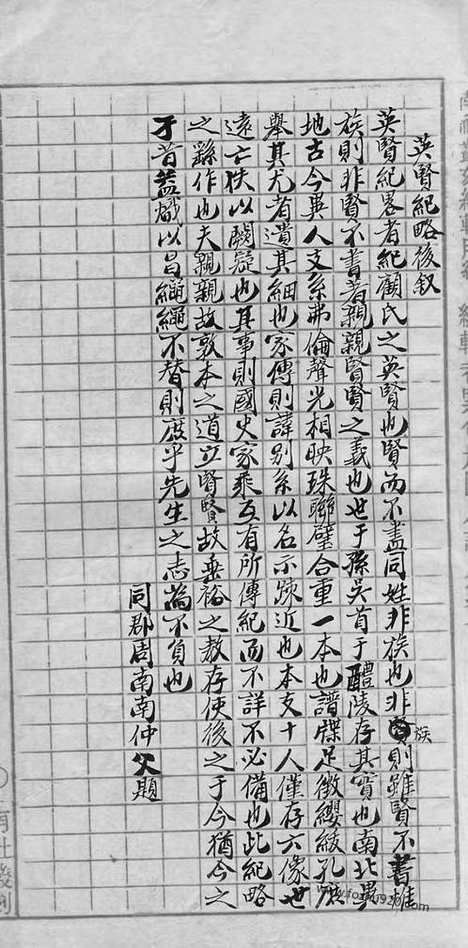 英賢紀略後叙
英賢紀畧者紀顧氏之英賢也賢而不盡同姓非族也非族則雖賢不書惟
族則非賢不書者親親賢賢之義也世于孫吳首于醴陵存其實也南北異
地古今異人支系弗倫聲光相映珠聯璧合重一本也譜牒足徵纓綾孔
舉其尤者遺其細也家傳則諱别系以名示疎近也本支十人僅存六像世
遠亡軼以闕疑也其事則國史家乘互有所傳紀而不詳不必備也此紀略
之繇作也夫親親故敦本之道立賢賢故垂裕之教存使後之于今猶今之
于昔益熾以昌繩繩不替則庶乎先生之志為不負也
同郡周南南仲父題